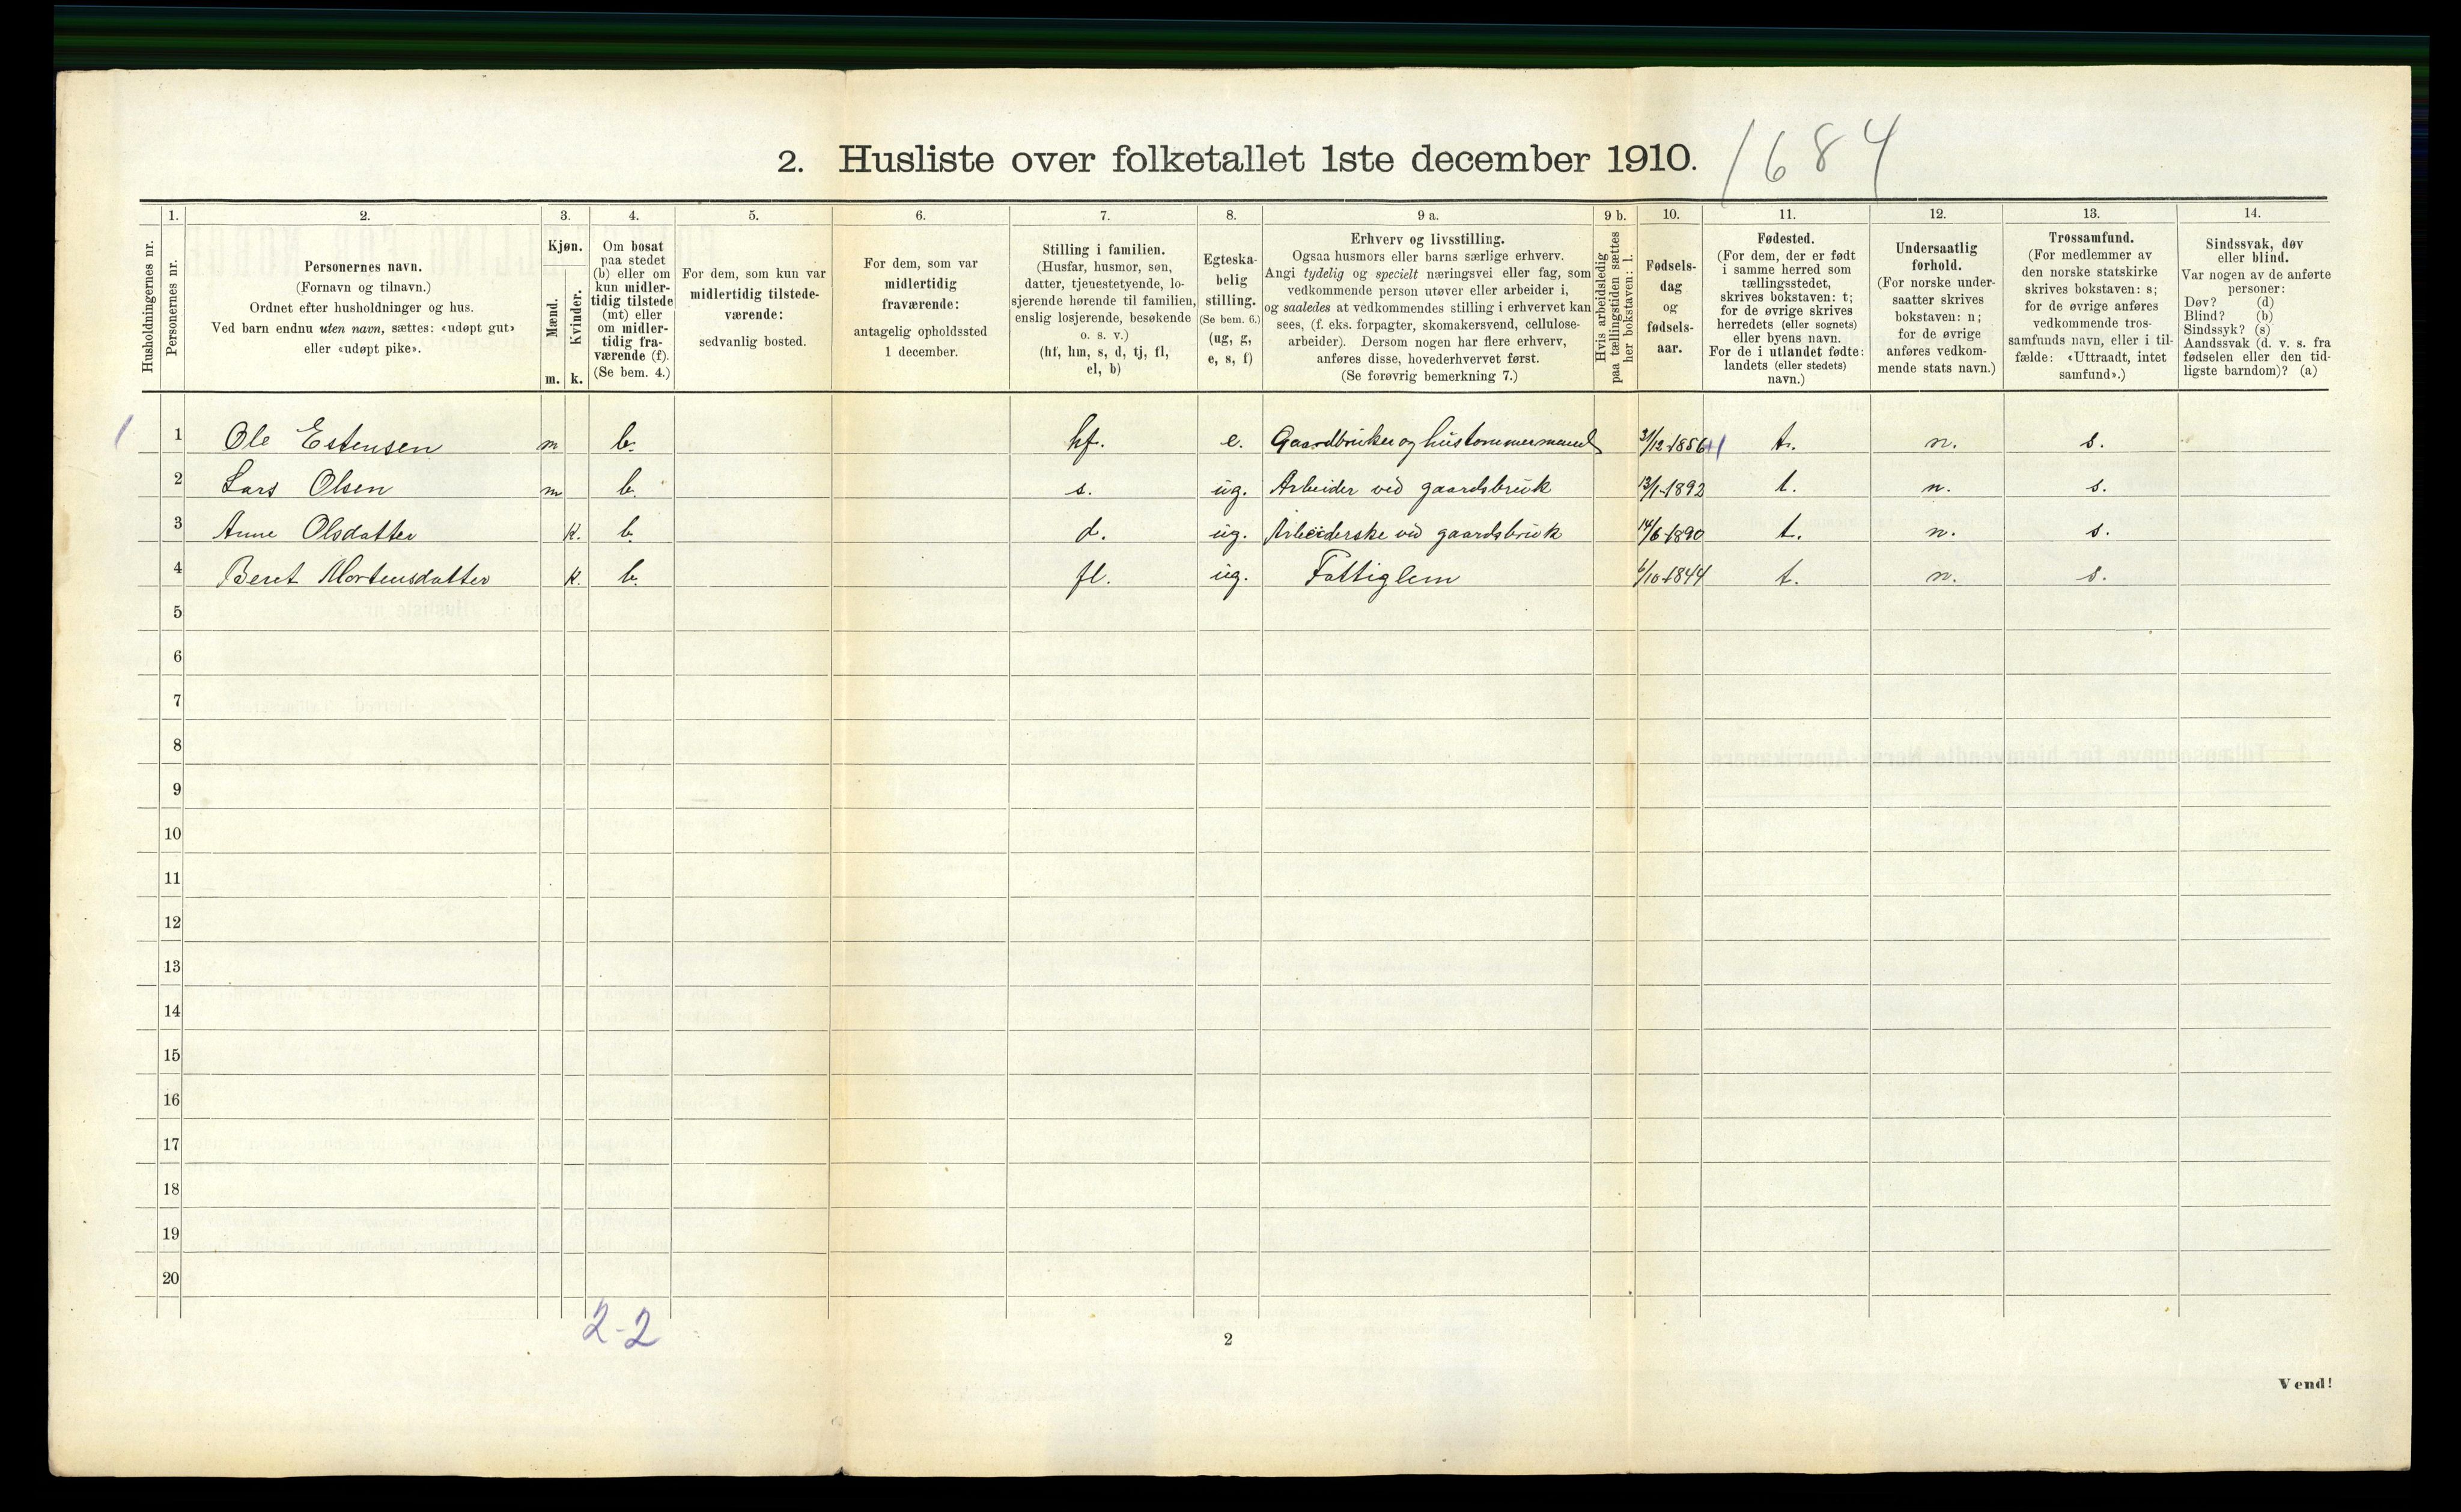 2. Husliste over folketallet 1ste december 1910. 1684
Husholdningernes nr.
1.
Personernes nr.
2.
Personernes navn.
(Fornavn og tilnavn.)
Ordnet efter husholdninger og hus.
Ved barn endnu uten navn, sættes: «udøpt gut»
eller «udøpt pike».
3.
Kjøn.
Mænd.
m.
Kvinder.
k.
4.
Om bosat
paa stedet
(b) eller om
kun midler-
tidig tilstede
(mt) eller
om midler-
tidig fra-
værende (f).
(Se bem. 4.)
5.
For dem, som kun var
midlertidig tilstede-
værende:
sedvanlig bosted.
6.
For dem, som var
midlertidig
fraværende:
antagelig opholdssted
1 december.
7.
Stilling i familien.
(Husfar, husmor, søn,
datter, tjenestetyende, lo-
sjerende hørende til familien,
enslig losjerende, besøkende
o. s. v.)
(hf, hm, s, d, tj, fl,
el, b)
8.
Egteska-
belig
stilling.
(Se bem. 6.)
(ug, g,
e, s, f)
9 a.
Erhverv og livsstilling.
Ogsaa husmors eller barns særlige erhverv.
Angi tydelig og specielt næringsvei eller fag, som
vedkommende person utøver eller arbeider i,
og saaledes at vedkommendes stilling i erhvervet kan
sees, (f. eks. forpagter, skomakersvend, cellulose-
arbeider). Dersom nogen har flere erhverv,
anføres disse, hovederhvervet først.
(Se forøvrig bemerkning 7.)
9 b.
Hvis arbeidsledig
paa tællingstiden sættes
her bokstaven: l.
10.
Fødsels-
dag
og
fødsels-
aar.
11.
Fødested.
(For dem, der er født
i samme herred som
tællingsstedet,
skrives bokstaven: t;
for de øvrige skrives
herredets (eller sognets)
eller byens navn.
For de i utlandet fødte:
landets (eller stedets)
navn.)
12.
Undersaatlig
forhold.
(For norske under-
saatter skrives
bokstaven: n;
for de øvrige
anføres vedkom-
mende stats navn.)
13.
Trossamfund.
(For medlemmer av
den norske statskirke
skrives bokstaven: s;
for de øvrige anføres
vedkommende tros-
samfunds navn, eller i til-
fælde: «Uttraadt, intet
samfund».)
14.
Sindssvak, døv
eller blind.
Var nogen av de anførte
personer:
Døv? (d)
Blind? (b)
Sindssyk? (s)
Aandssvak (d. v. s. fra
fødselen eller den tid-
ligste barndom)? (a)
1 1 Ole Estensen m b. hf. e. Gaardbruker og hustømmermand 31/12-1856 t. n. s.
2 Lars Olsen m b. s. ug. Arbeider ved gaardsbruk 13/1-1892 t. n. s.
3 Anne Olsdatter k. b. d. ug. Arbeiderske ved gaardsbruk 14/6-1890 t. n. s.
4 Beret Mortensdatter k. b. fl. ug. Fattiglem 6/10-1844 t. n. s.
5
6
7
8
9
10
11
12
13
14
15
16
17
18
19
20
2-2
2
Vend!